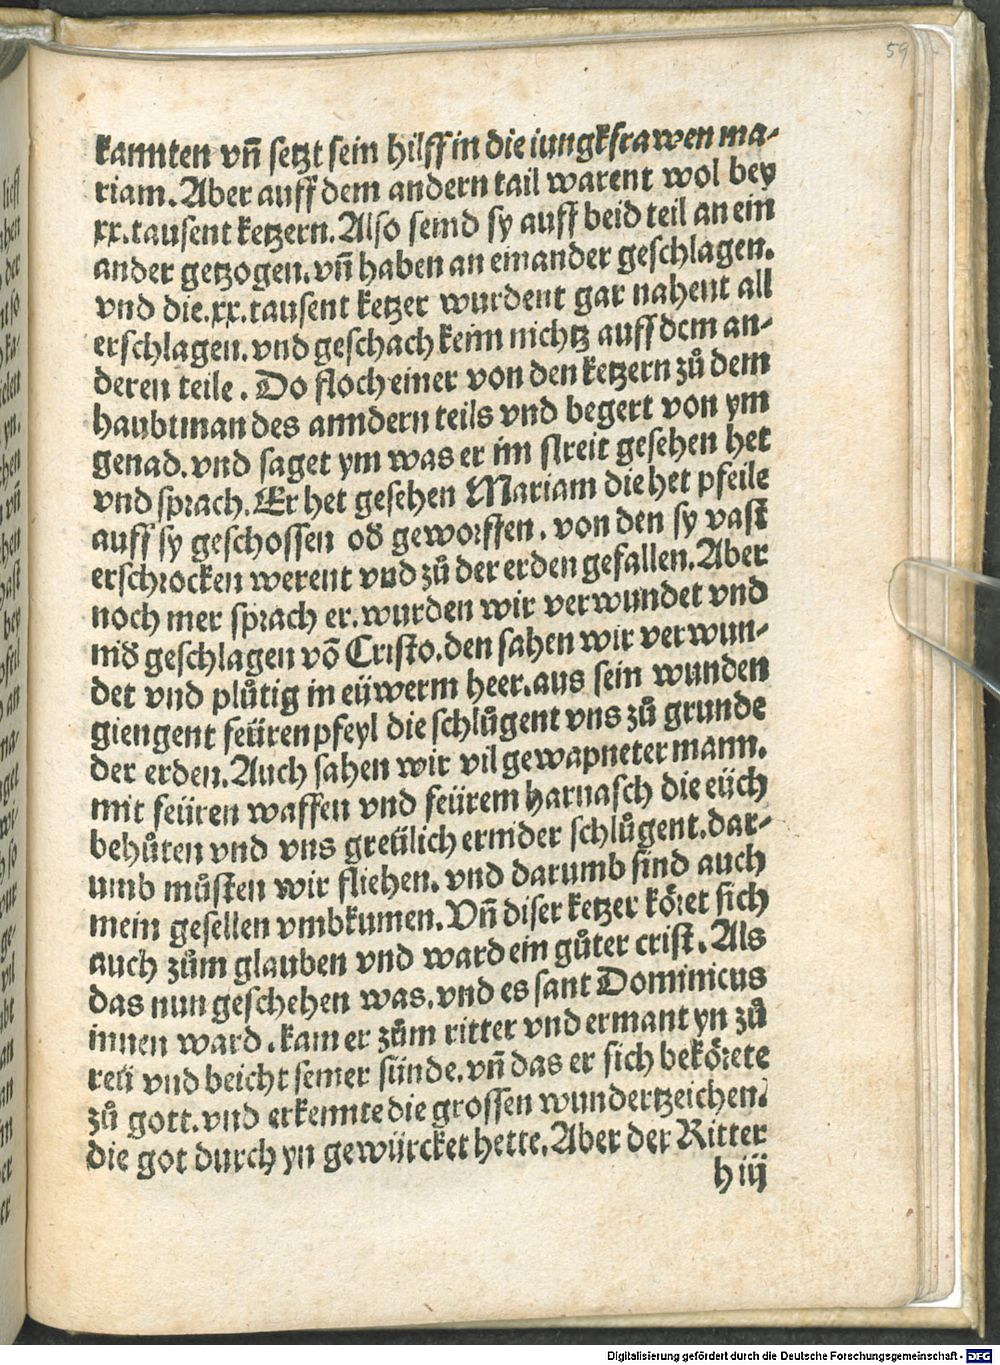 59
kannten vn̄ setzt sein hilff in die iungkfrawen ma-
riam. Aber auff dem andern tail warent wol bey
xx. tausent ketzern. Also seind sy auff beid teil an ein
ander getzogen. vn̄ haben an einander geschlagen.
vnd die .xx. tausent ketzer wurdent gar nahent all
erschlagen. vnd geschach keim nichtz auff dem an-
deren teile. Do floch einer von den ketzern zů dem
haubtman des anndern teils vnd begert von ym
genad. vnd saget ym was er im streit gesehen het
vnd sprach. Er het gesehen Mariam die het pfeile
auff sy geschossen od̄ geworffen. von den sy vast
erschrocken werent vnd zů der erden gefallen. Aber
noch mer sprach er. wurden wir verwundet vnd
nid̄ geschlagen võ Cristo. den sahen wir verwun-
det vnd plůtig in eüwerm heer. aus sein wunden
giengent feüren pfeyl die schlůgent vns zů grunde
der erden. Auch sahen wir vil gewapneter mann.
mit feüren waffen vnd feürem harnasch die eüch
behůten vnd vns greülich ernider schlůgent. dar-
umb můsten wir fliehen. vnd darumb sind auch
mein gesellen vmbkumen. Vn̄ diser ketzer köret sich
auch zům glauben vnd ward ein gůter crist. Als
das nun geschehen was. vnd es sant Dominicus
innen ward. kam er zům ritter vnd ermant yn zů
reü vnd beicht seiner sünde. vn̄ das er sich bekörete
zů gott. vnd erkennte die grossen wundertzeichen.
die got durch yn gewürcket hette. Aber der Ritter
h iij
Digitalisierung gefördert durch die Deutsche Forschungsgemeinschaft - DFG